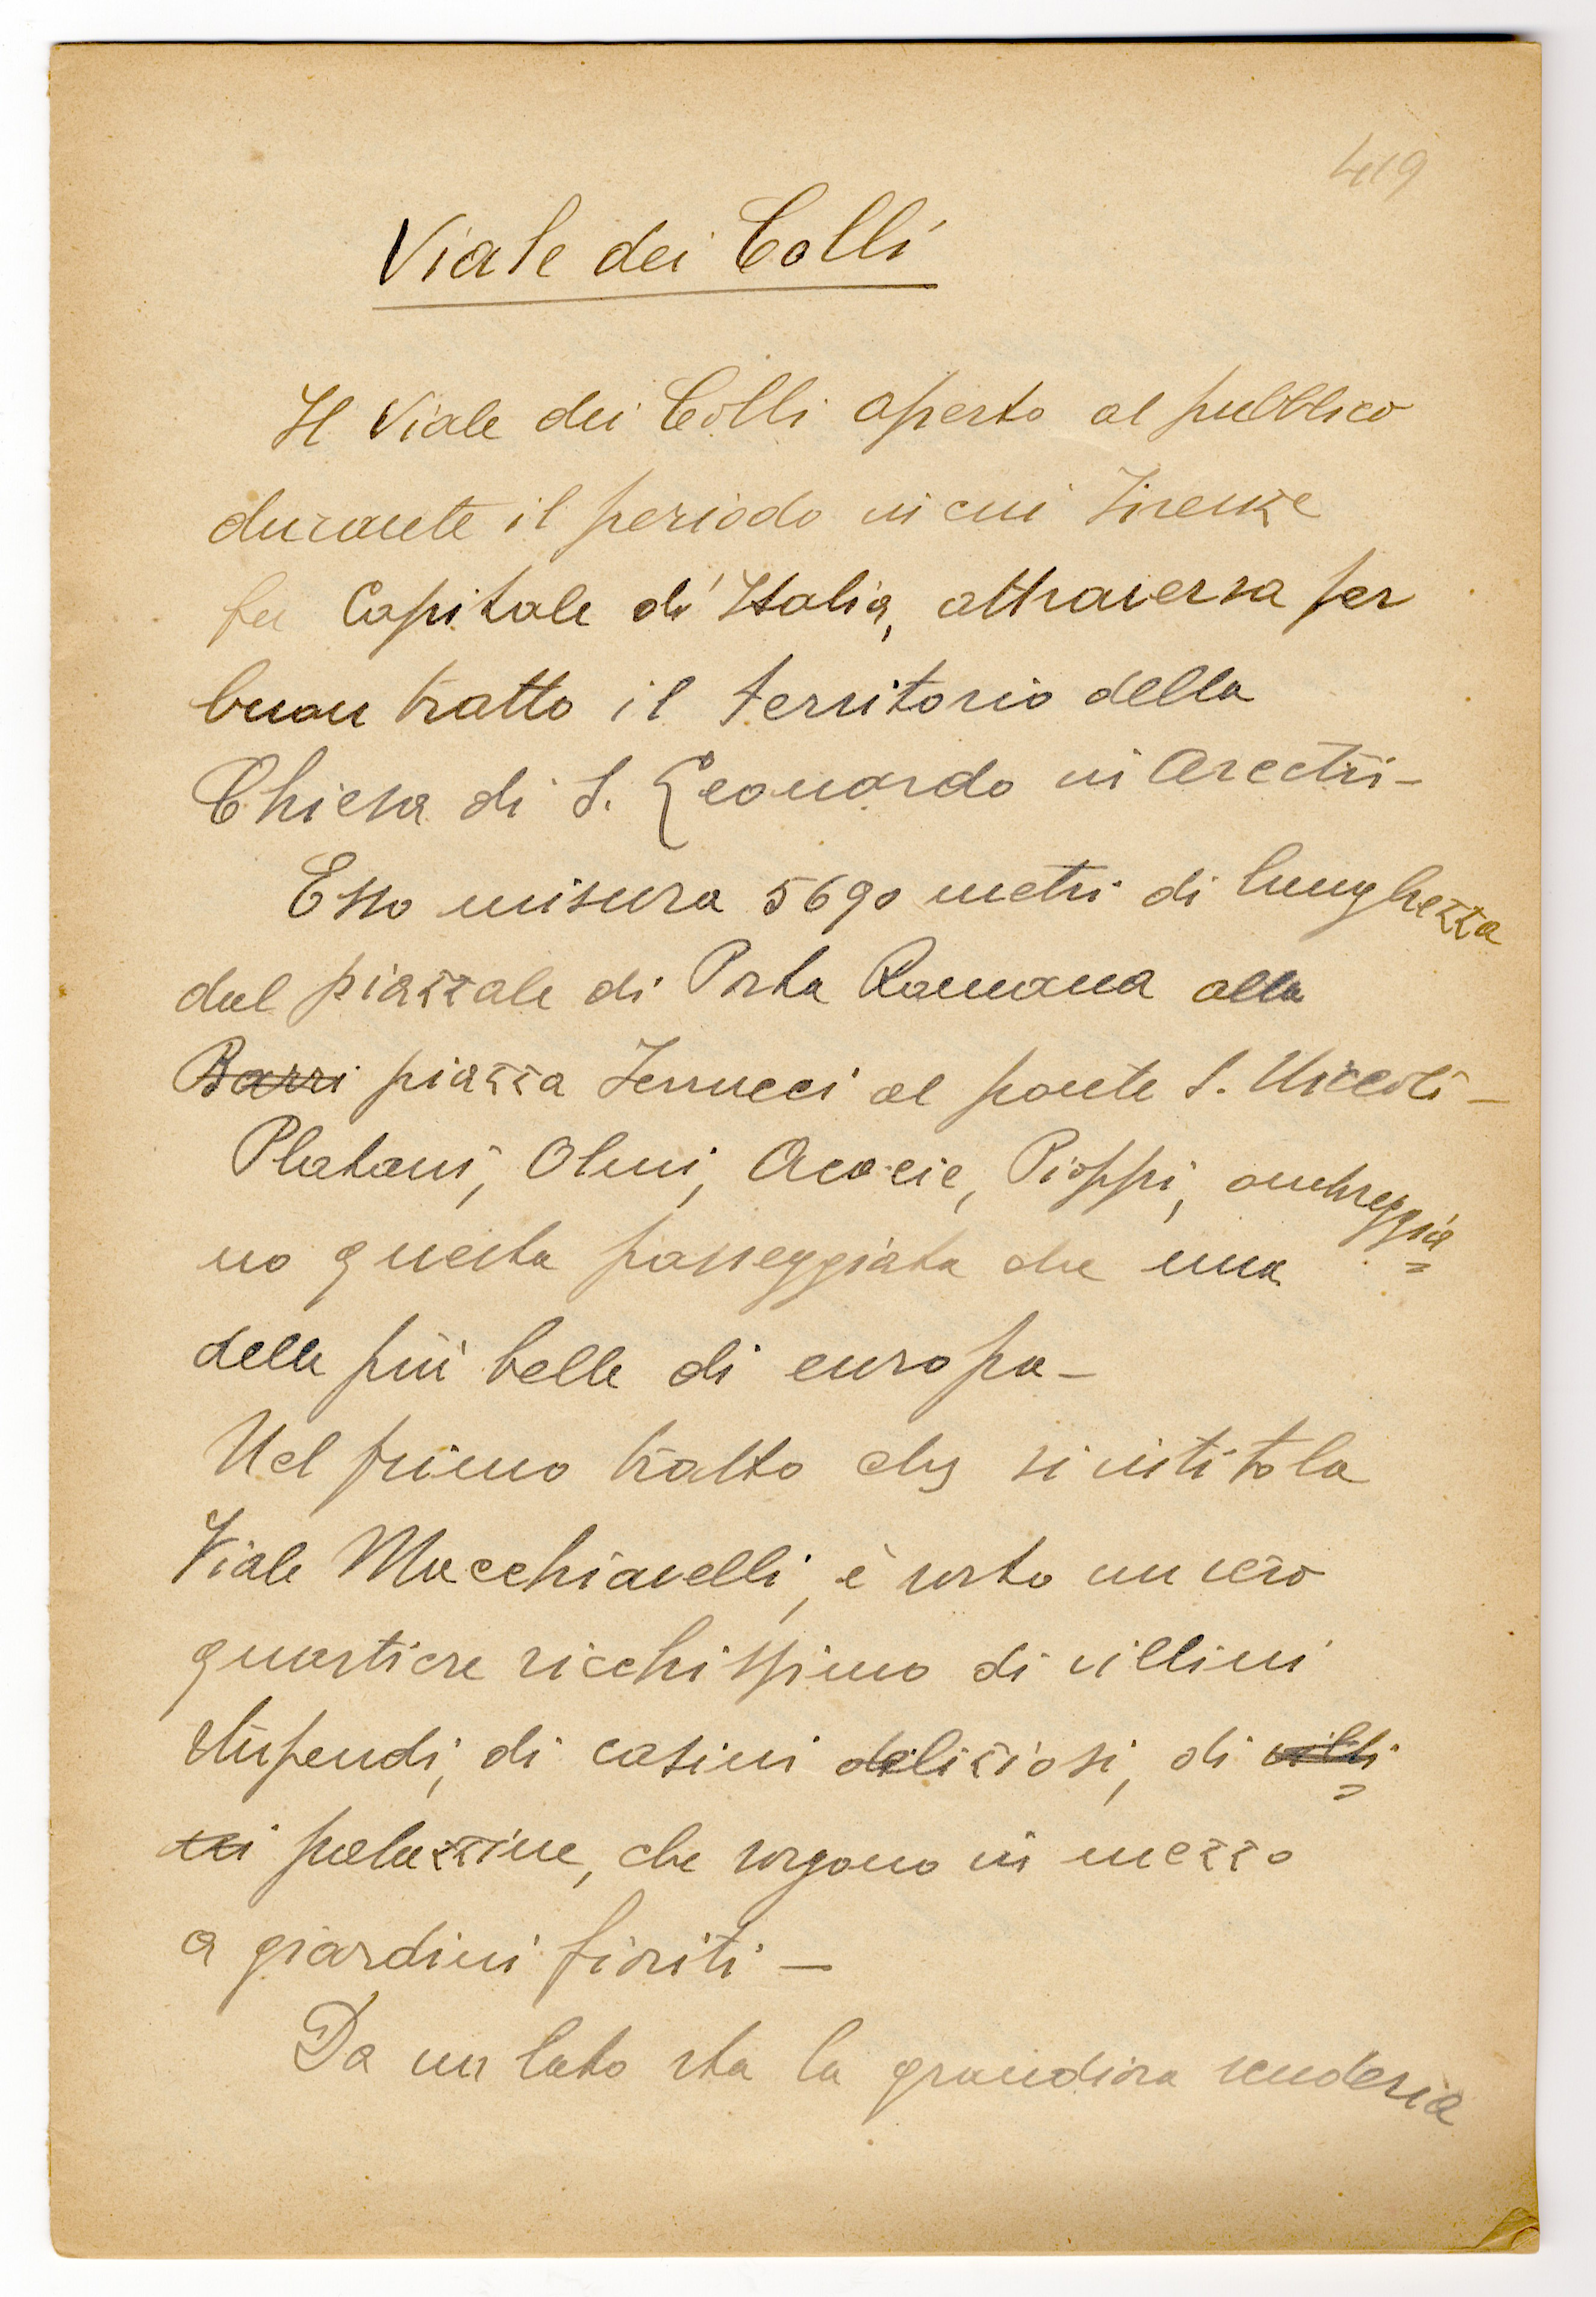 419
Viale dei Colli
Il Viale dei Colli aperto al pubblico
durante il periodo in cui Firenze
fu Capitale d'Italia, attraversa per
buon tratto il territorio della
Chiesa di S. Leonardo in Arcetri -
Esso misura 5690 metri di lunghezza
dal piazzale di Porta Romana alla
Barri piazza Ferrucci al ponte S. Niccolò -
Platani, Olmi, Acacie, Pioppi, ombreggia=
no questa passeggiata che una
delle più belle di europa -
Nel primo tratto che si intitola
Viale Macchiavelli, è sorto un vero
quartiere ricchissimo di villini
stupendi, di casini deliziosi, di villi=
ni palazzine, che sorgono in mezzo
a giardini fioriti -
Da un lato sta la grandiosa scuderia